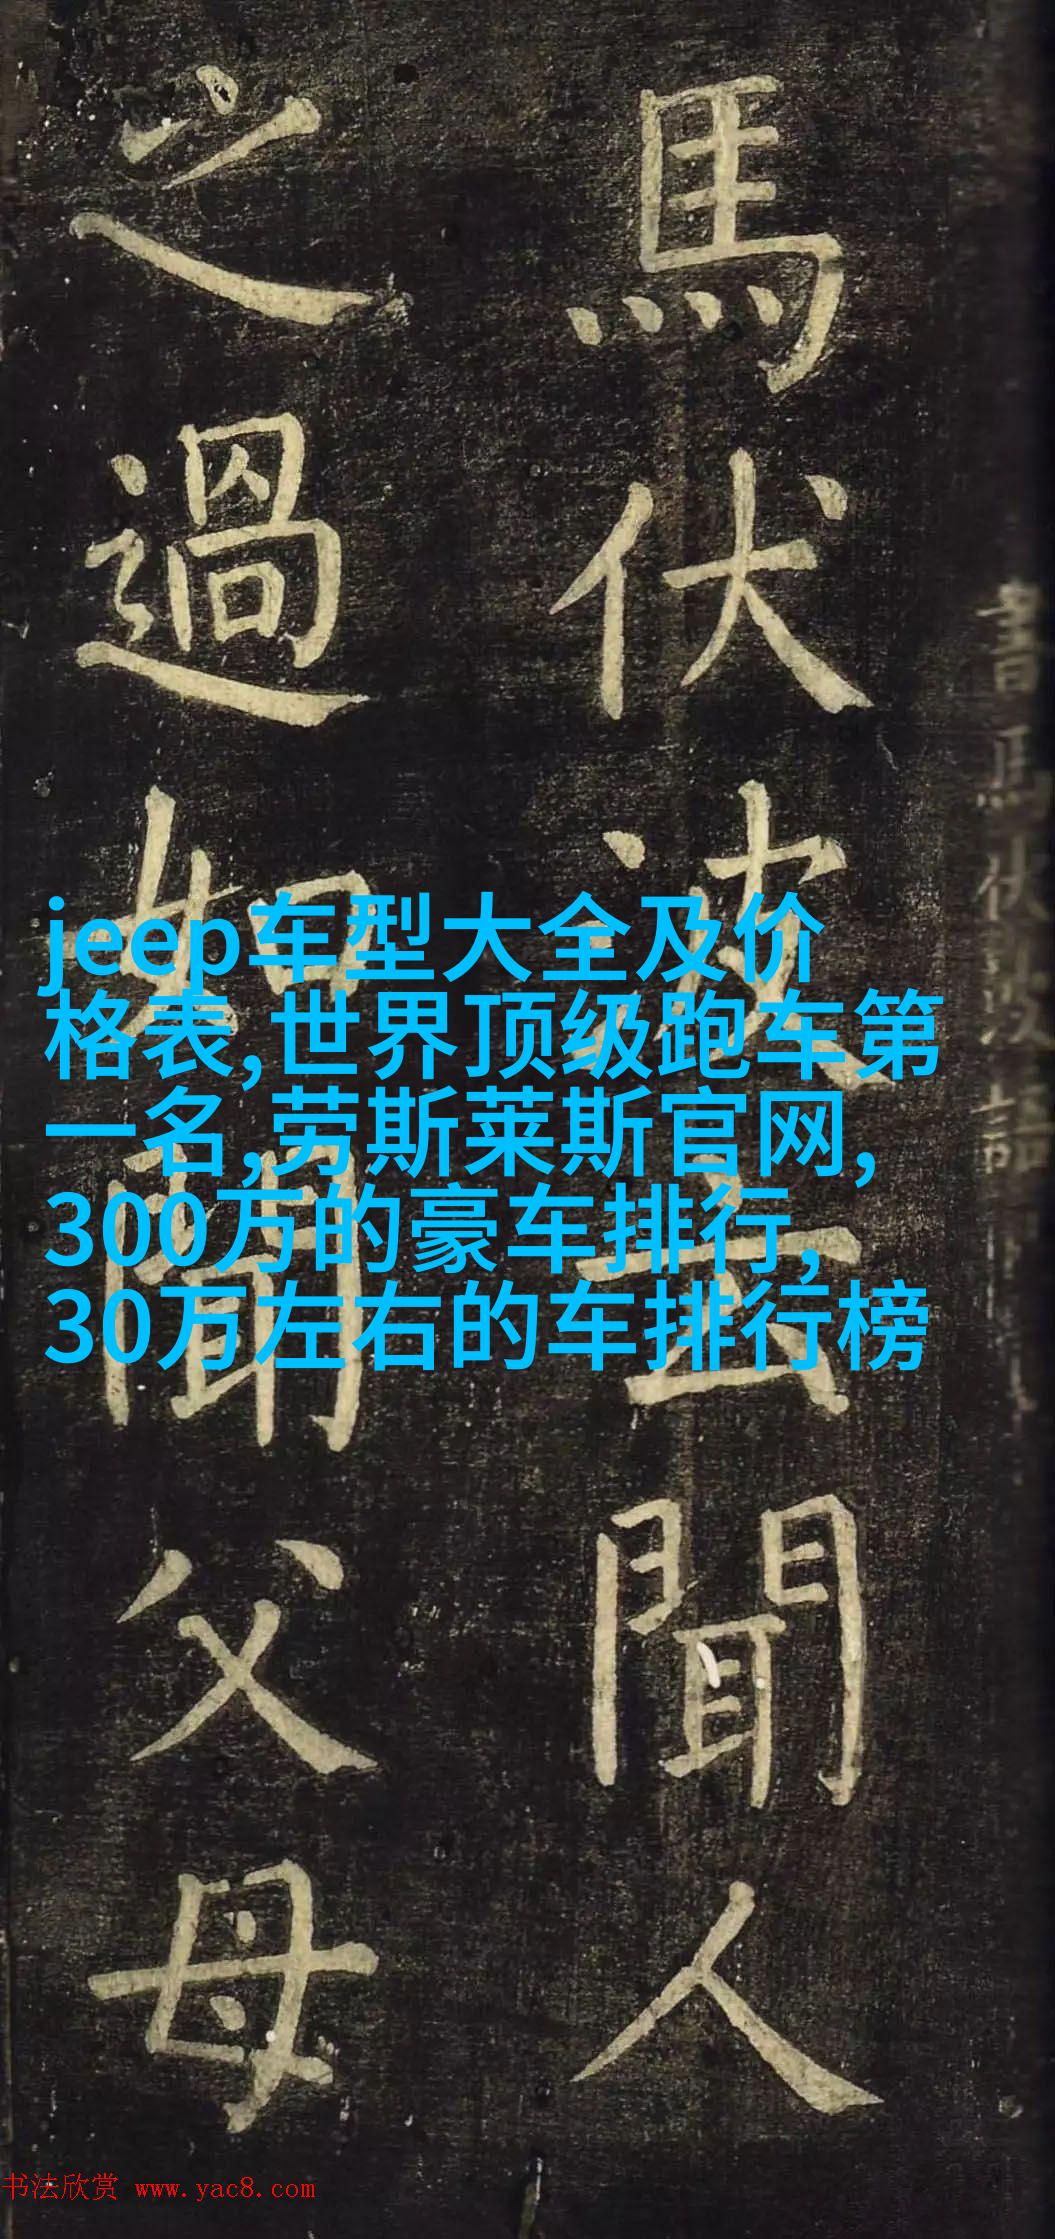 馬伏波云聞人
之過如聞父母
jeep车型大全及价
格表,世界顶级跑车第
一名,劳斯莱斯官网,
300万的豪车排行,
30万左右的车排行榜
书法欣赏 www.yac8.com